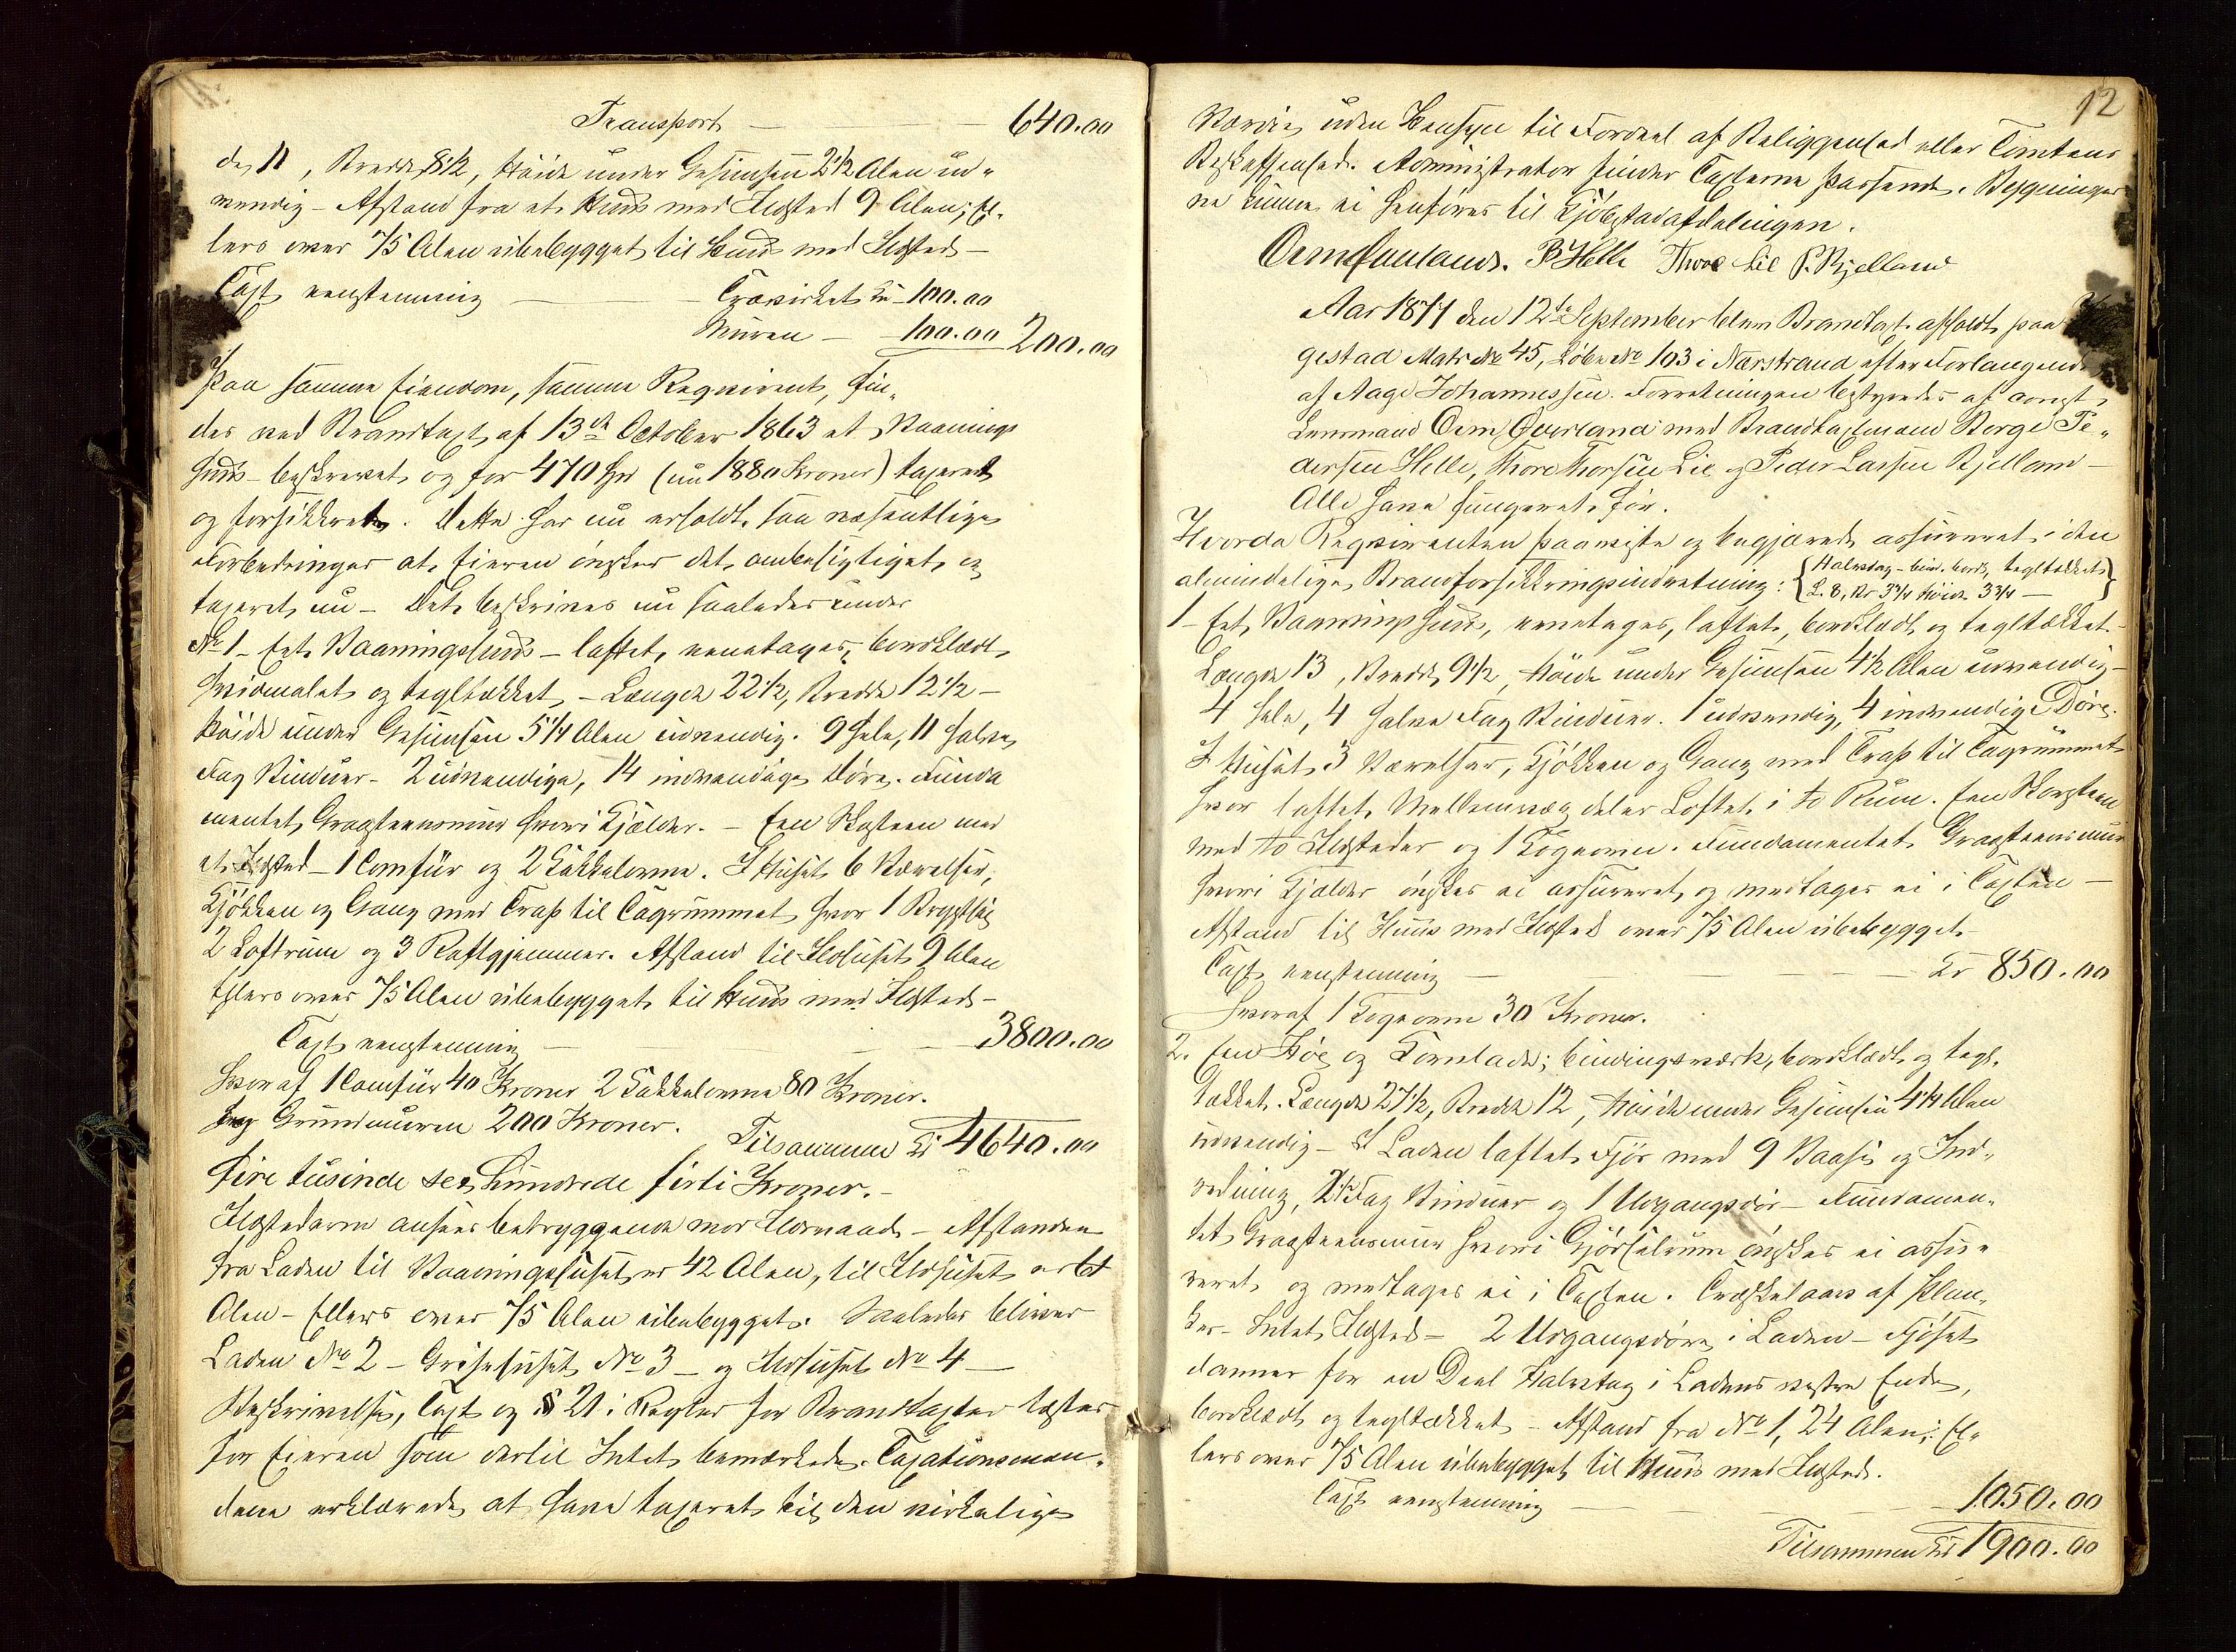 Transport — 640.00
de 11, Bredde 8 1/2, Høide under Gesimsen 2 1/2 Alen ud„
vendig – Afstand fra et Huus med Ildsted 9 Alen; El„
lers over 75 Alen ubebygget til Huus med Ildsted –
Taxt eenstemmig — Træværket Kr – 100.00
Muren — 100.00 200.00
Paa samme Eiendom, samme Reqvirent, fin„
des ved Brandtaxt af 13de October 1863 et Vaanings
huus – beskrevet og for 470 Spd (nu 1880 Kroner) taxeret
og forsikkret. Dette har nu erholdt saa væsentlige
Forbedringer at Eieren ønsker det ombesigtiget og
taxeret nu – Det beskrives nu saaledes under
No 1 – Eet Vaaningshuus – laftet, eenetages, bordklædt
hvidmalet og tegltækket – Længde 22 1/2, Bredde 12 1/2 –
Høide under Gesimsen 5 1/4 Alen udvendig. 9 hele, 11 halve
Fag Vinduer – 2 udvendige, 14 indvendige Døre. Funda
mentet Graasteensmuur hvori Kjælder. – Een Skorsteen med
et Ildsted – 1 Comfür og 2 Kakkelovne. I Huset 6 Værelser,
Kjøkken og Gang med Trap til Tagrummet hvor 1 Brystlag
2 Loftrum og 3 Raftgjemmer. Afstand til Ildhuset 9 Alen
Ellers over 75 Alen ubebygget til Huus med Ildsted –
Taxt eenstemmig — 3800.00
hvoraf 1 Comfür 40 Kroner 2 Kakkelovne 80 Kroner.
og Grundmuren 200 Kroner. Tilsammen Kr 4640.00
Fire tusinde sex hundrede firti Kroner. –
Ildstederne ansees betryggende mod Ildsvaade – Afstanden
fra Laden til Vaaningshuset er 42 Alen, til Ildhuset er 61
Alen – Ellers over 75 Alen ubebygget. Saaledes bliver
Laden No 2 – Grisehuset No 3 – og Ildhuset No 4 —
Beskrivelse, Taxt og § 21 i Regler for Brandtaxter læstes
for Eieren som dertil Intet bemærkede. Taxationsmæn„
dene erklærede at have taxeret til den virkelige
12
Værdie uden Hensyn til Fordeel af Beliggenhed eller Tomtens
Beskaffenhed. Administrator finder Taxterne passende. Bygninger
ne kunne ei henføres til Kjøbstadafdelingen.
Orm Qverland. B Helle Thore Lie P. Kjelland
Aar 1877 den 12te September blev Brandtaxt afholdt paa
gestad Matr No 45, Løbe No 103 i Nærstrand efter Forlangende
af Aage Johannessen. Forretningen bestyredes af const.
Lensmand Orm Qverland med Brandtaxtmænd Børge Pe„
dersen Helle, Thore Thorsen Lie og Peder Larsen Kjelland –
Alle have fungeret før.
Hvorda Reqvirenten paaviste og begjærede assureret i den
almindelige Brandforsikkringsindretning: { Halvtag – bind. bords, tegltækket
L. 8, Br 3 3/4 Høide 3 3/4 — }
1 – Eet Vaaningshuus, eenetages, laftet, bordklædt og tegltækket –
Længde 13, Bredde 9 1/2, Høide under Gesimsen 4 1/2 Alen udvendig –
4 hele, 4 halve Fag Vinduer. 1 udvendig, 4 indvendige Døre.
I Huset 3 Værelser, Kjøkken og Gang med Trap til Tagrummet
hvor laftet Mellemvæg deler Loftet i to Rum. Een Skorsteen
med to Ildsteder og 1 Kogeovn. Fundamentet Graasteensmuur
hvori Kjælder ønskes ei assureret og medtages ei i Taxten –
Afstand til Huus med Ildsted over 75 Alen ubebygget –
Taxt eenstemmig — Kr 850.00
Hvoraf 1 Kogeovn 30 Kroner.
2. Een Høe og Kornlade; bindingsværk, bordklædt og tegl„
tækket. Længde 27 1/2, Bredde 12, Høide under Gesimsen 4 1/4 Alen
udvendig – I Laden laftet Fjøs med 9 Baase og Ind„
redning, 2 1/2 Fag Vinduer og 1 Udgangsdør – Fundamen„
tet Graasteensmuur hvori Gjødselrum ønskes ei assu„
reret og medtages ei i Taxten. Træskelaave af Plan„
ker – Intet Ildsted – 2 Udgangsdøre i Laden – Fjøset
danner for en Deel Halvtag i Ladens vestre Ende,
bordklædt og tegltækket – Afstand fra No 1, 24 Alen; El„
lers over 75 Alen ubebygget til Huus med Ildsted.
Taxt eenstemmig — 1050.00
Tilsammen Kr 1900.00